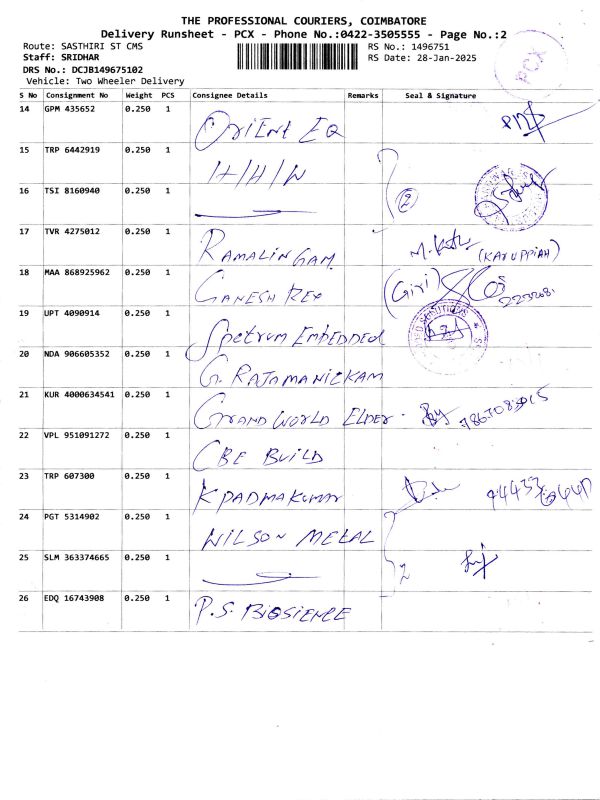 THE PROFESSIONAL COURIERS, COIMBATORE
Delivery Runsheet - PCX - Phone No.:0422-3505555 - Page No.:2
Route: SASTHIRI ST CMS
RS No.: 1496751
Staff: SRIDHAR
RS Date: 28-Jan-2025
DRS No.: DCJB149675102
Vehicle: Two Wheeler Delivery
PCX
S No Consignment No Weight PCS Consignee Details Remarks Seal & Signature
14 GPM 435652 0.250 1 ORIENT EQ
15 TRP 6442919 0.250 1 H/H/W
16 TSI 8160940 0.250 1 2
17 TVR 4275012 0.250 1 RAMALINGAM (KARUPPIAH)
18 MAA 868925962 0.250 1 GANESH REX (Giri)
19 UPT 4090914 0.250 1 Spetrum EMBEDDED
20 NDA 906605352 0.250 1 G. RAJAMANICKAM
21 KUR 4000634541 0.250 1 GRAND WORLD ELDER
22 VPL 951091272 0.250 1 CBE BUILD
23 TRP 607300 0.250 1 K PADMAKUMAR
24 PGT 5314902 0.250 1 WILSON METAL
25 SLM 363374665 0.250 1 2
26 EDQ 16743908 0.250 1 P.S. BIOSIENCE